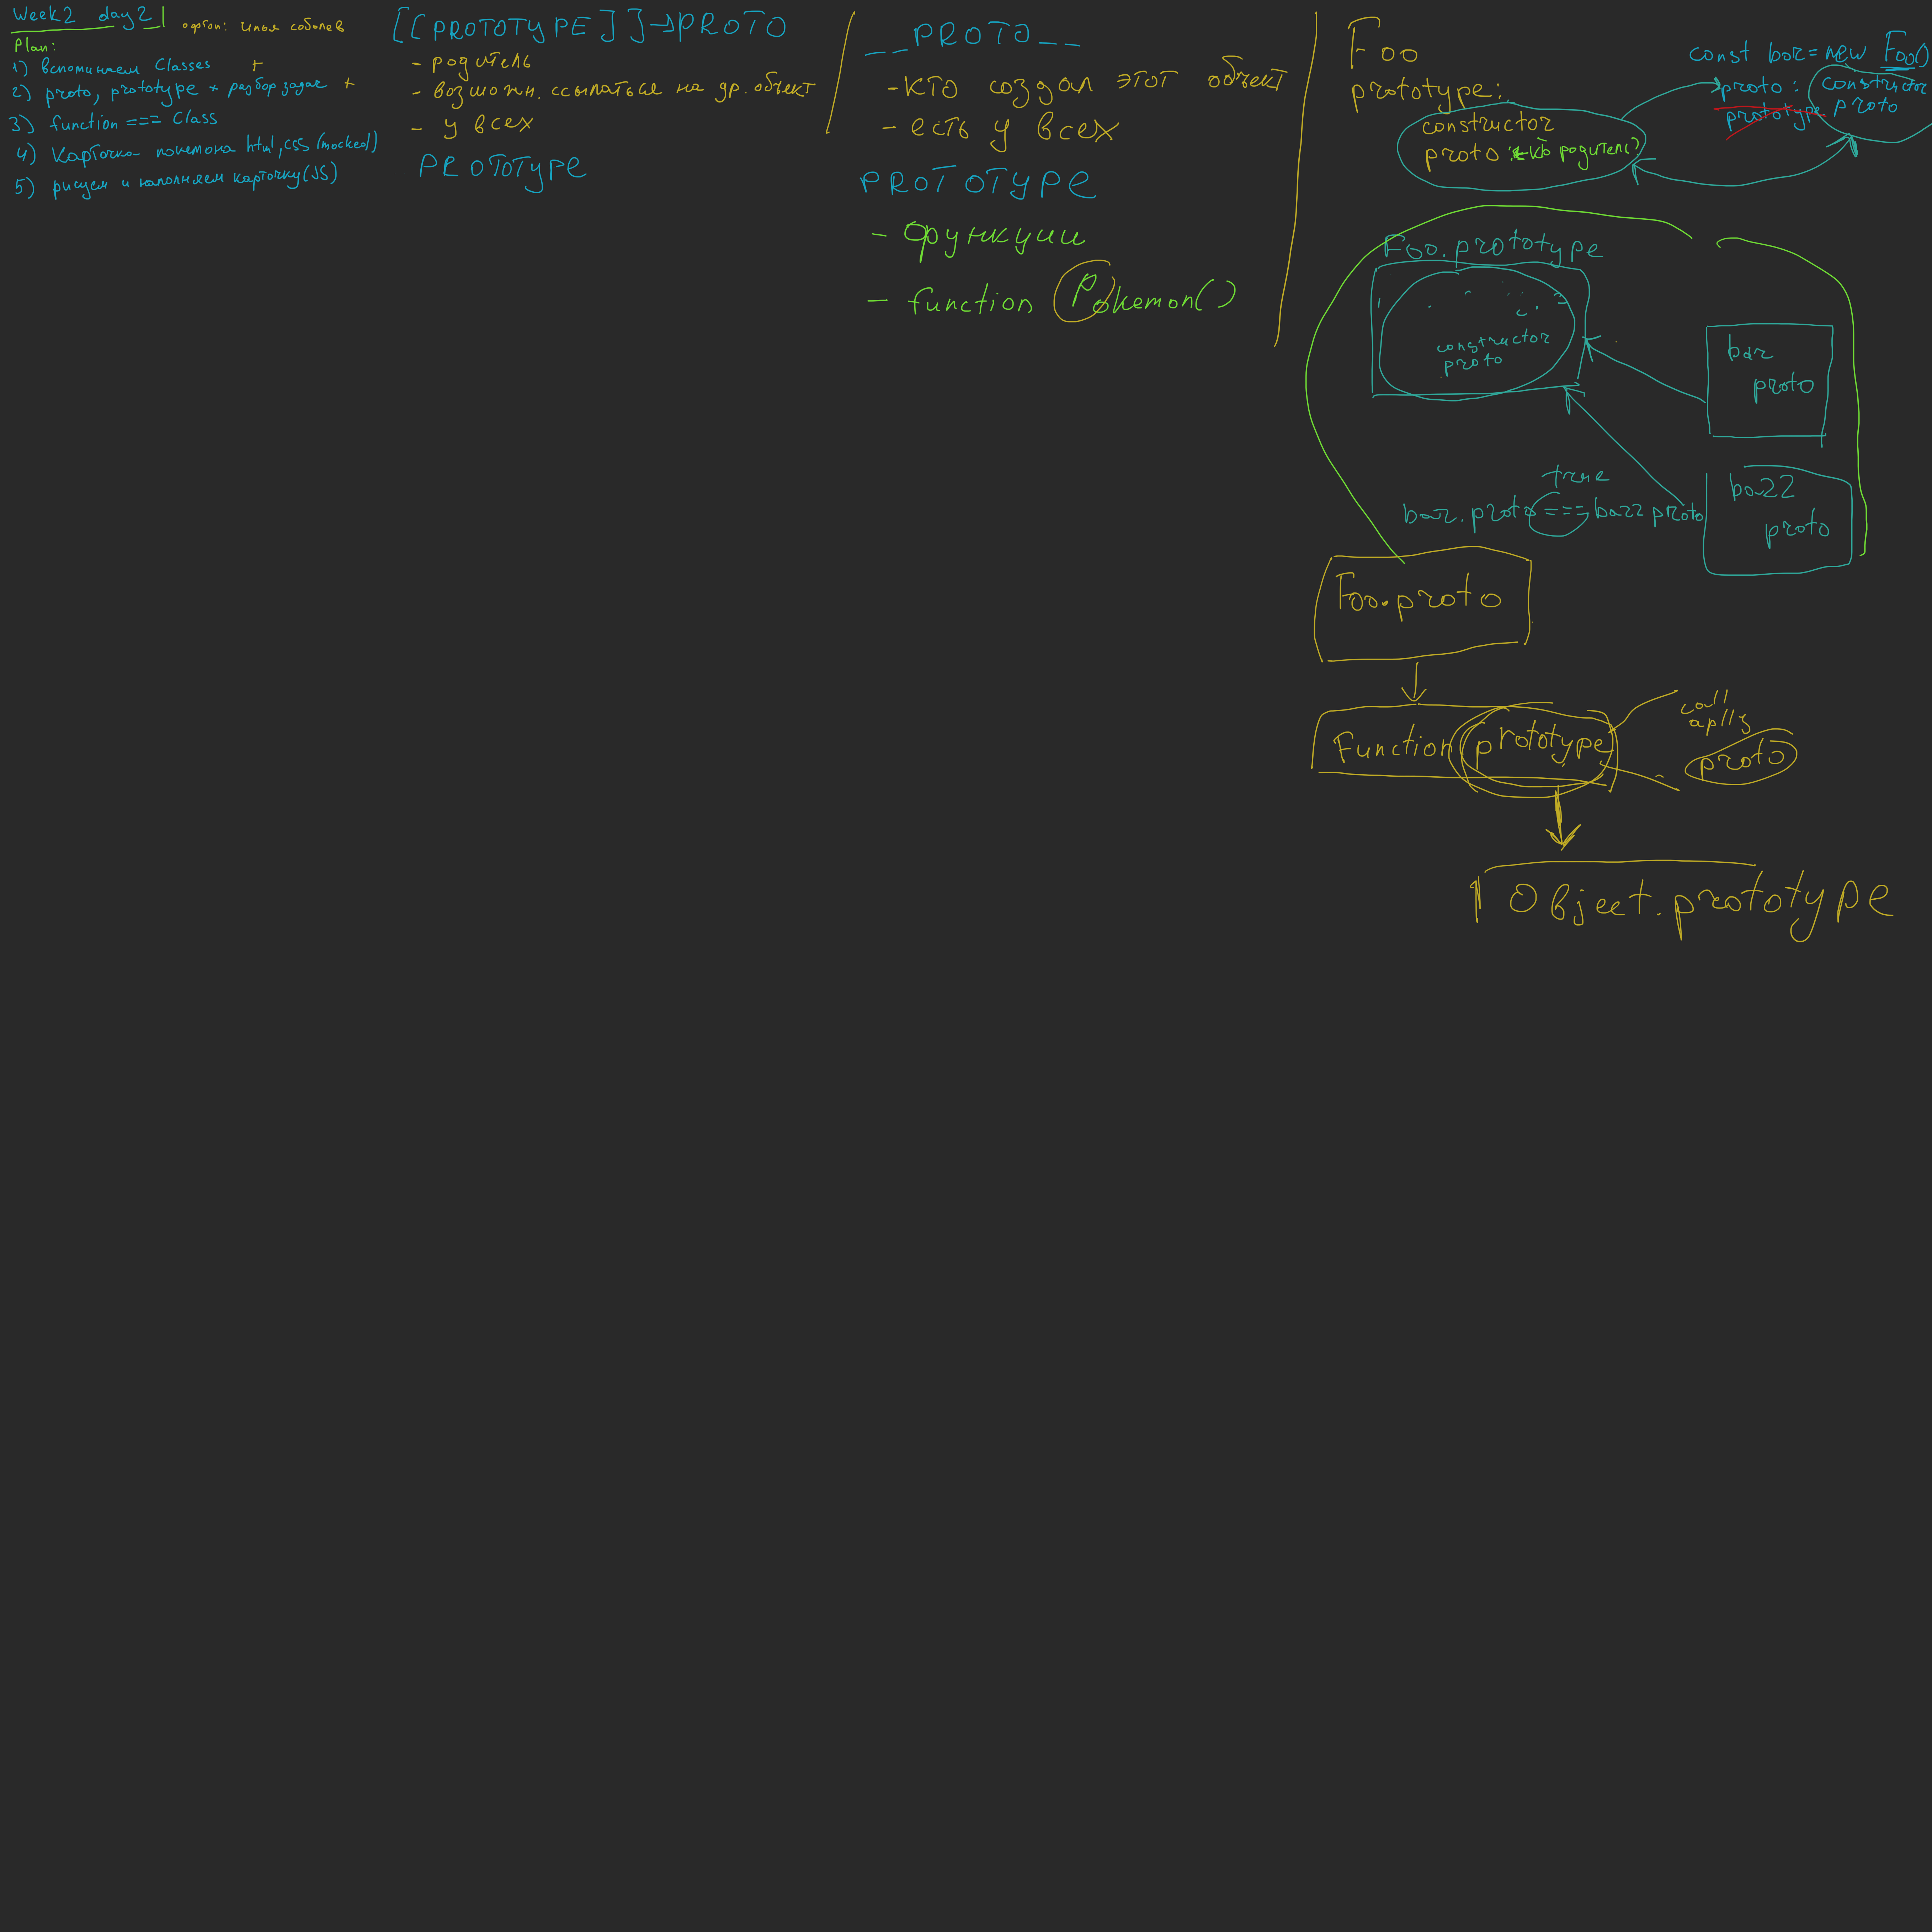 Week2 day2
офтоп: Илья соболев
Plan:
1) вспоминаем Classes +
2) proto, prototype + разбор задач +
3) function === Class
4) Карточка покемона html, css (mocked)
5) рисуем и наполняем карточку (JS)
[[PROTOTYPE]]→PROTO
- родитель
- возможн. ссылаться на др. объект
- у всех
PROTOTYPE
__PROTO__
- кто создал этот объект
- есть у всех
PROTOTYPE
- функции
- function Pokemon()
Foo
prototype:
constructor
proto: ← кто родитель?
const bar = new Foo()
proto: constructor
proto
prototype
Foo.prototype
constructor
proto
bar
proto
bazz
proto
true
bar.proto === bazz proto
Foo.proto
Function prototype
call
aplly
proto
Object.prototype